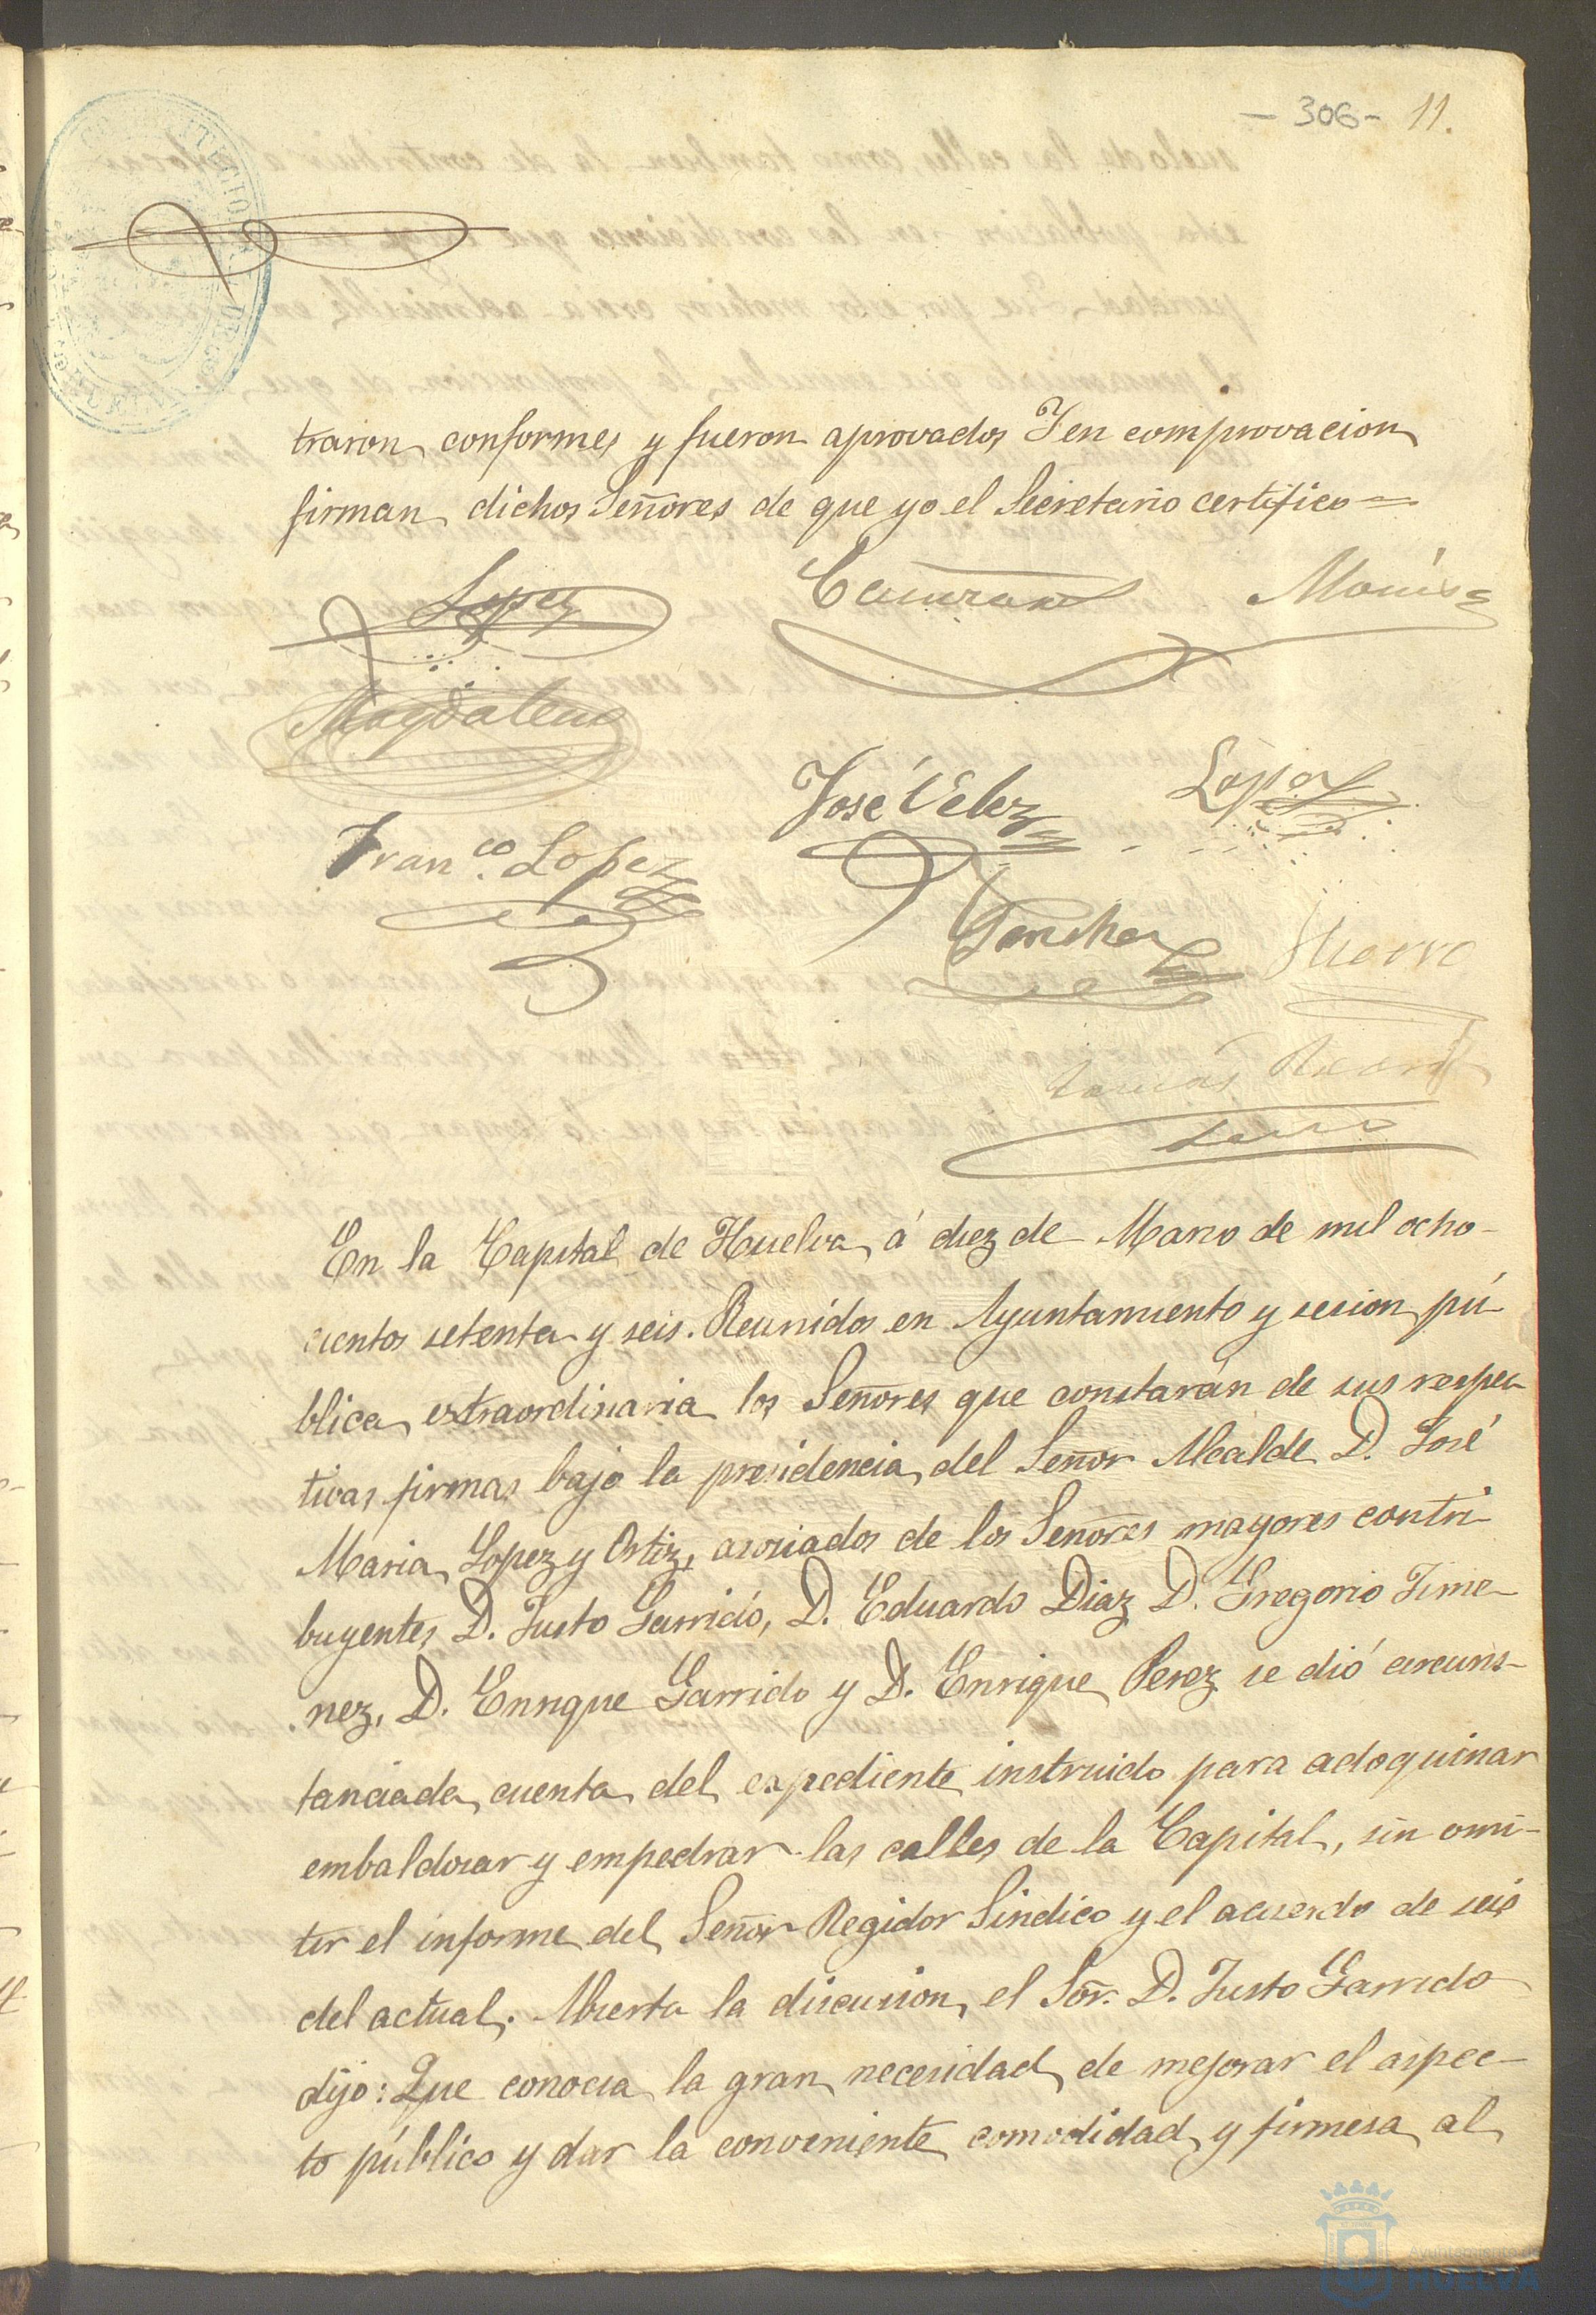 - 306 - 11.
traron conformes y fueron aprovados Y en comprovacion
firman dichos Señores de que yo el Secretario certifico =
Lopez
Monís
Magdalena
José Velez
Lopez
Fran.co Lopez
Sanchez
Tomás
En la Capital de Huelva, á diez de Marzo de mil ocho-
cientos setenta y seis. Reunidos en Ayuntamiento y sesion pú-
blica extraordinaria los Señores que constarán de sus respec
tivas firmas bajo la presidencia del Señor Alcalde D. José
Maria Lopez y Ortiz, asociados de los Señores mayores contri-
buyentes D. Justo Garrido, D. Eduardo Diaz D. Gregorio Jime-
nez, D. Enrique Garrido y D. Enrique Perez se dió circuns-
tanciada cuenta del expediente instruido para adoquinar
embaldosar y empedrar las calles de la Capital, sin omi-
tir el informe del Señor Regidor Sindico y el acuerdo de seis
del actual. Abierta la discusion, el Sór. D. Justo Garrido
dijo: Que conocia la gran necesidad de mejorar el aspec-
to público y dar la conveniente comodidad y firmesa al
Ayuntamiento de
HUELVA